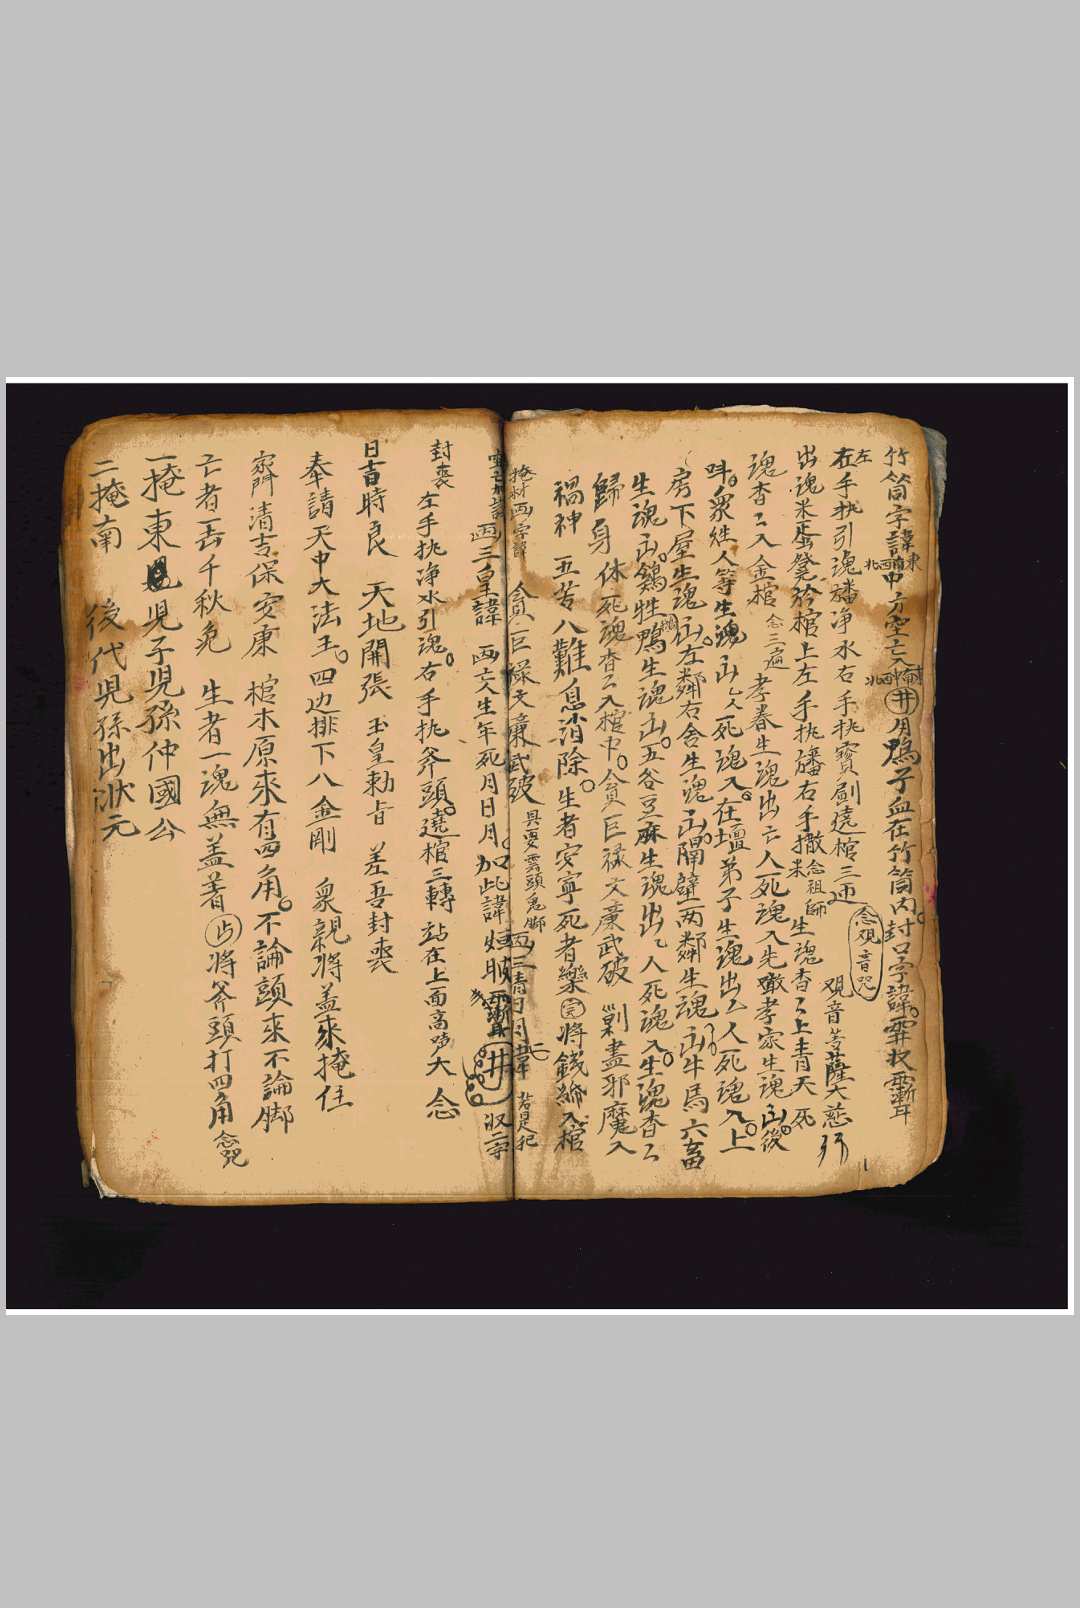 竹筒字諱東南西北中方空亡入東南中西北井用鴨子血在竹筒内封口字諱
左在手执引魂旛净水右手执寳劍遶棺三
念覌音咒
覌音菩薩大慈
出魂米凳於棺上左手执旛右手撒米念祖師生魂杳〻上青天死
魂杳〻入金棺念三遍孝眷生魂出亡人死魂入先孝家生魂出後
衆姓人等生魂出亡人死魂入在壇弟子生魂出亡人死魂入上
房下屋生魂出左鄰右舍生魂出隔壁两鄰生魂出牛馬六畜
生魂出鷄牲鴨生魂出五谷豆麻生魂出亡人死魂入生魂杳〻
歸身休死魂杳〻入棺中貪巨禄文廉武破剿盡邪魔入
禍神五苦八難息消除生者安寧死者樂完将錢綿入棺
掩材画字諱貪巨禄文廉武破具要雲頭鬼脚
画三皇諱画亡人生年死月日月加此諱
封丧左手执净水引魂右手执斧頭遶棺三轉站在上面高声大念
日吉時良天地開張玉皇勅旨差吾封丧
奉請天中大法王四边排下八金剛衆親将蓋來掩住
家門清吉保安康棺木原來有四角不論頭來不論脚
亡者一去千秋免生者一魂無盖著将斧頭打四角念咒
一掩東兒子兒孫仲國公
二掩南後代兒孫出狀元